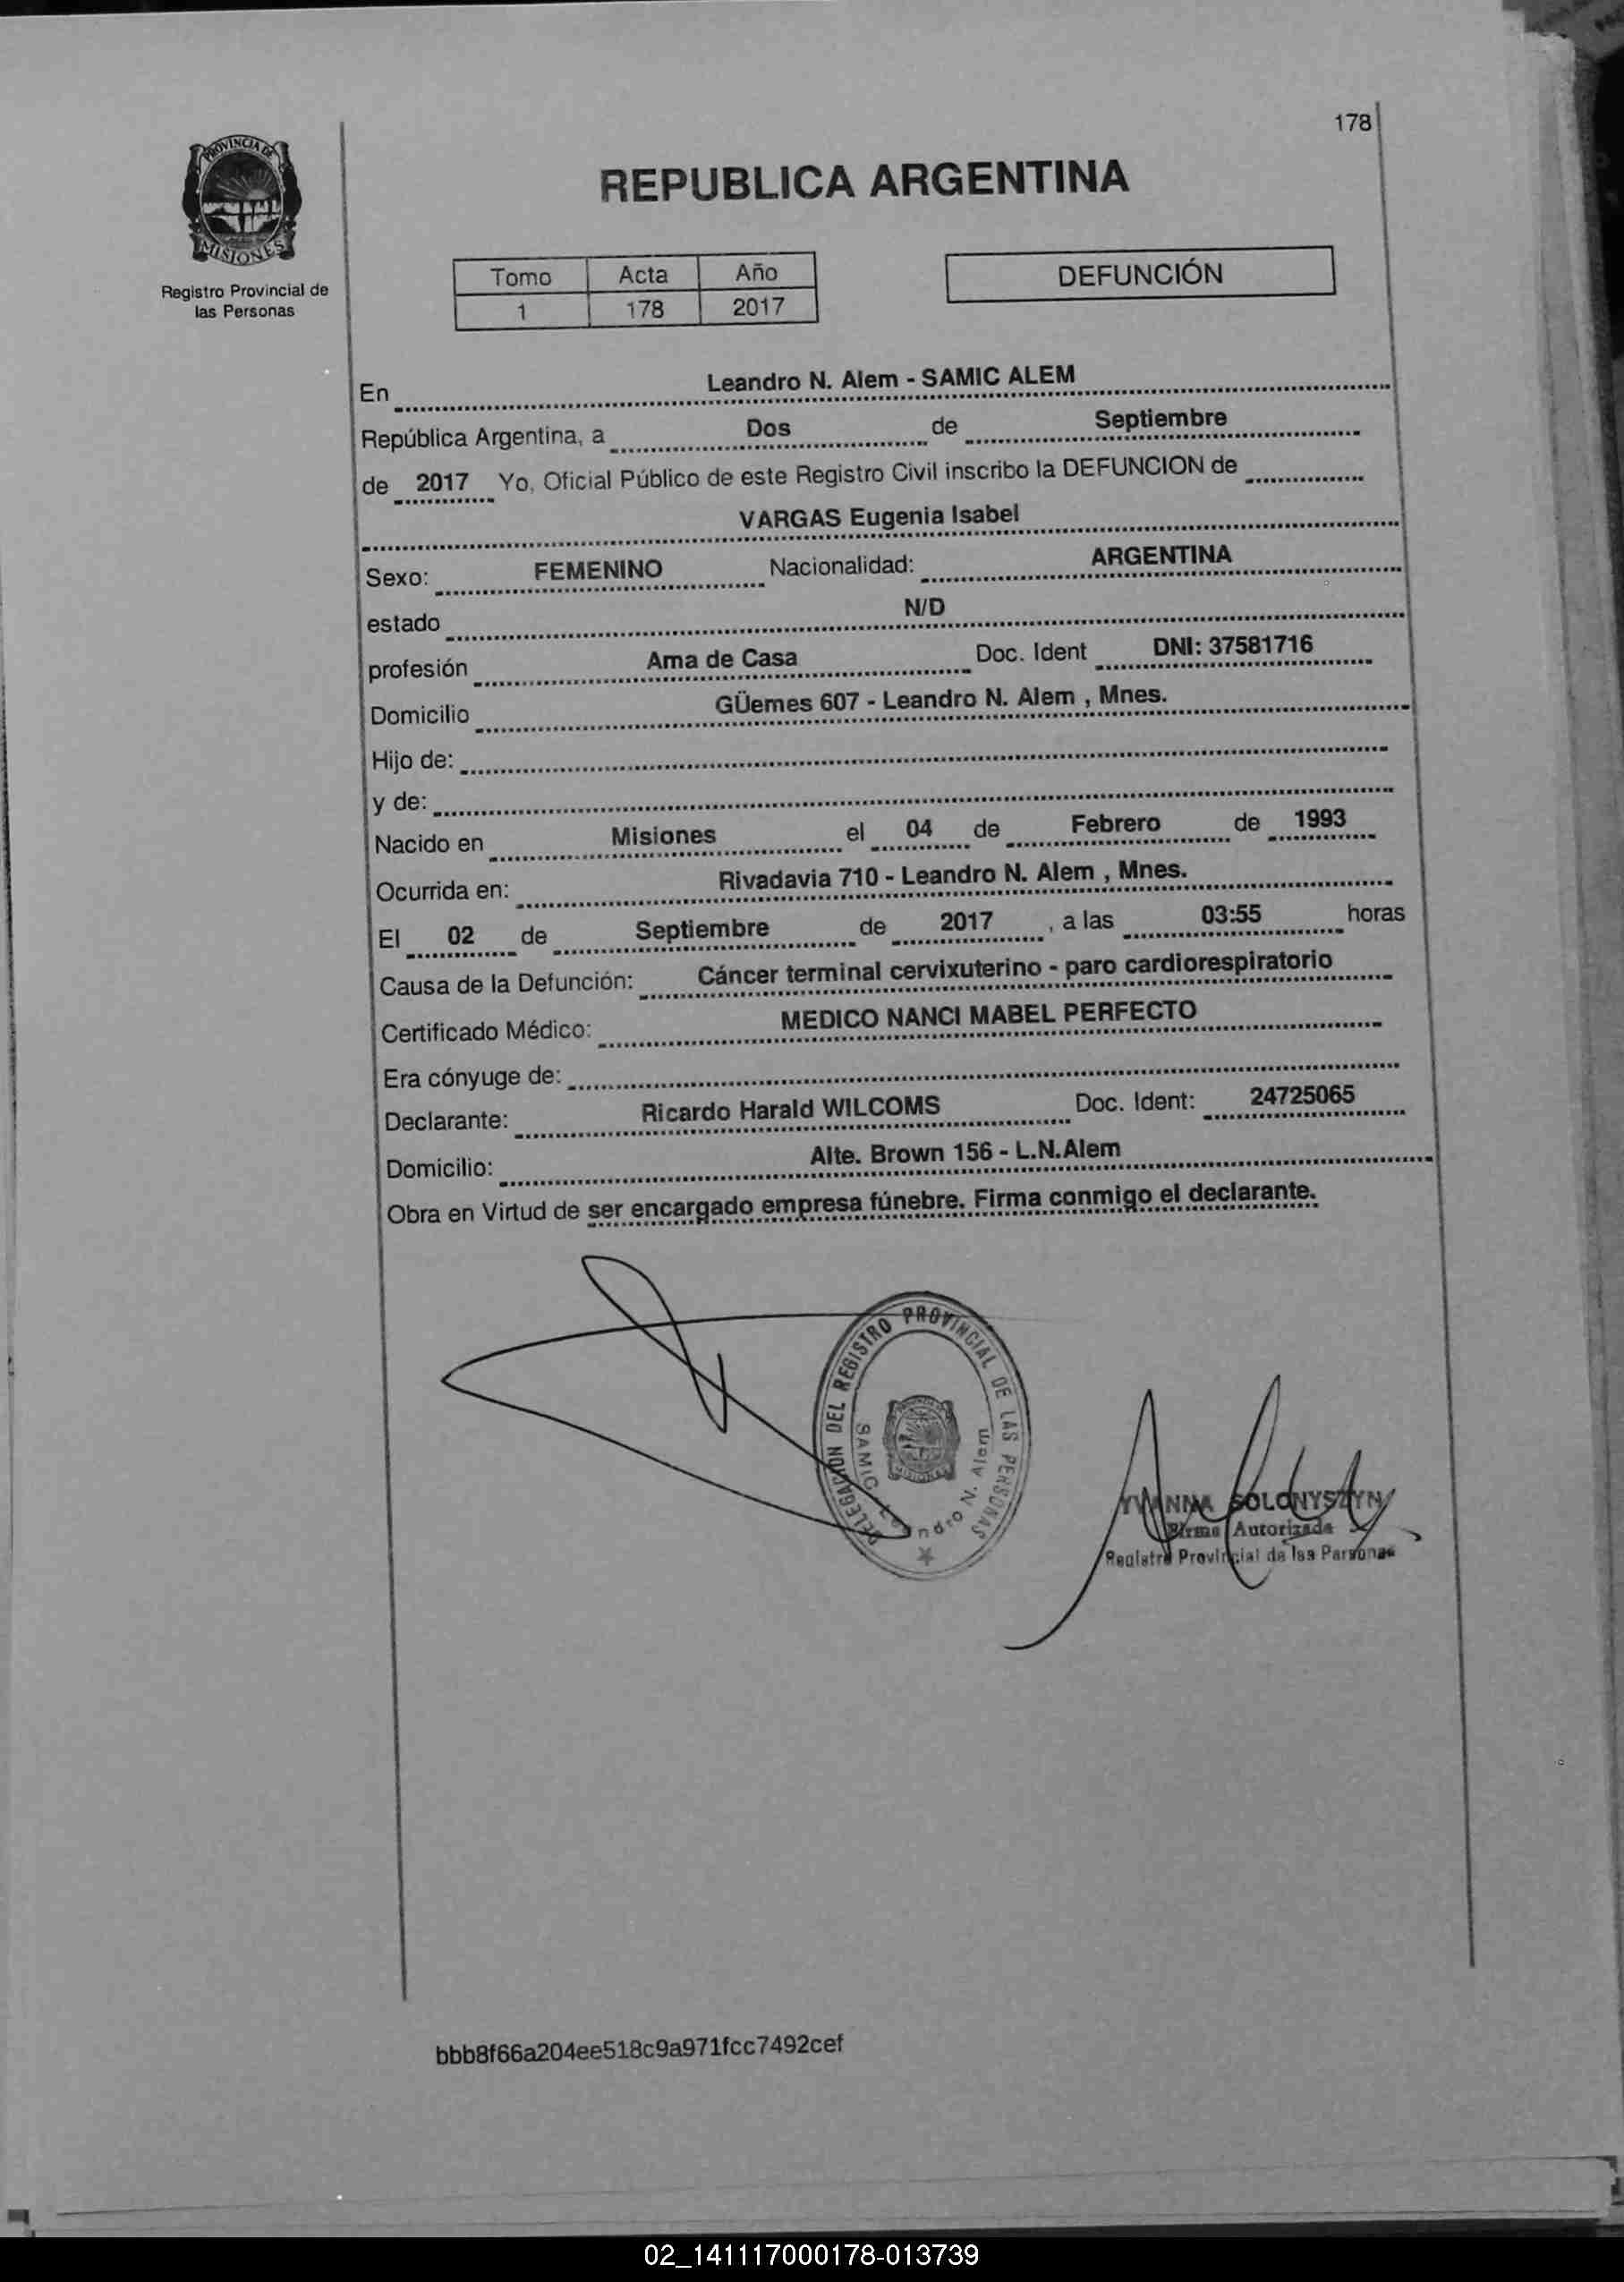 178
PROVINCIA DE
MISIONES
Registro Provincial de
las Personas
REPUBLICA ARGENTINA
Tomo Acta Año
1 178 2017
DEFUNCIÓN
En Leandro N. Alem - SAMIC ALEM
República Argentina, a Dos de Septiembre
de 2017 Yo, Oficial Público de este Registro Civil inscribo la DEFUNCION de
VARGAS Eugenia Isabel
Sexo: FEMENINO Nacionalidad: ARGENTINA
estado N/D
profesión Ama de Casa Doc. Ident DNI: 37581716
Domicilio GÜemes 607 - Leandro N. Alem , Mnes.
Hijo de:
y de:
Nacido en Misiones el 04 de Febrero de 1993
Ocurrida en: Rivadavia 710 - Leandro N. Alem , Mnes.
El 02 de Septiembre de 2017 , a las 03:55 horas
Causa de la Defunción: Cáncer terminal cervixuterino - paro cardiorespiratorio
Certificado Médico: MEDICO NANCI MABEL PERFECTO
Era cónyuge de:
Declarante: Ricardo Harald WILCOMS Doc. Ident: 24725065
Domicilio: Alte. Brown 156 - L.N.Alem
Obra en Virtud de ser encargado empresa fúnebre. Firma conmigo el declarante.
DELEGACION DEL REGISTRO PROVINCIAL DE LAS PERSONAS
SAMIC Leandro N. Alem
MISIONES
YVANNA SOLONYSZYN
Firma Autorizada
Registro Provincial de las Personas
bbb8f66a204ee518c9a971fcc7492cef
02_141117000178-013739